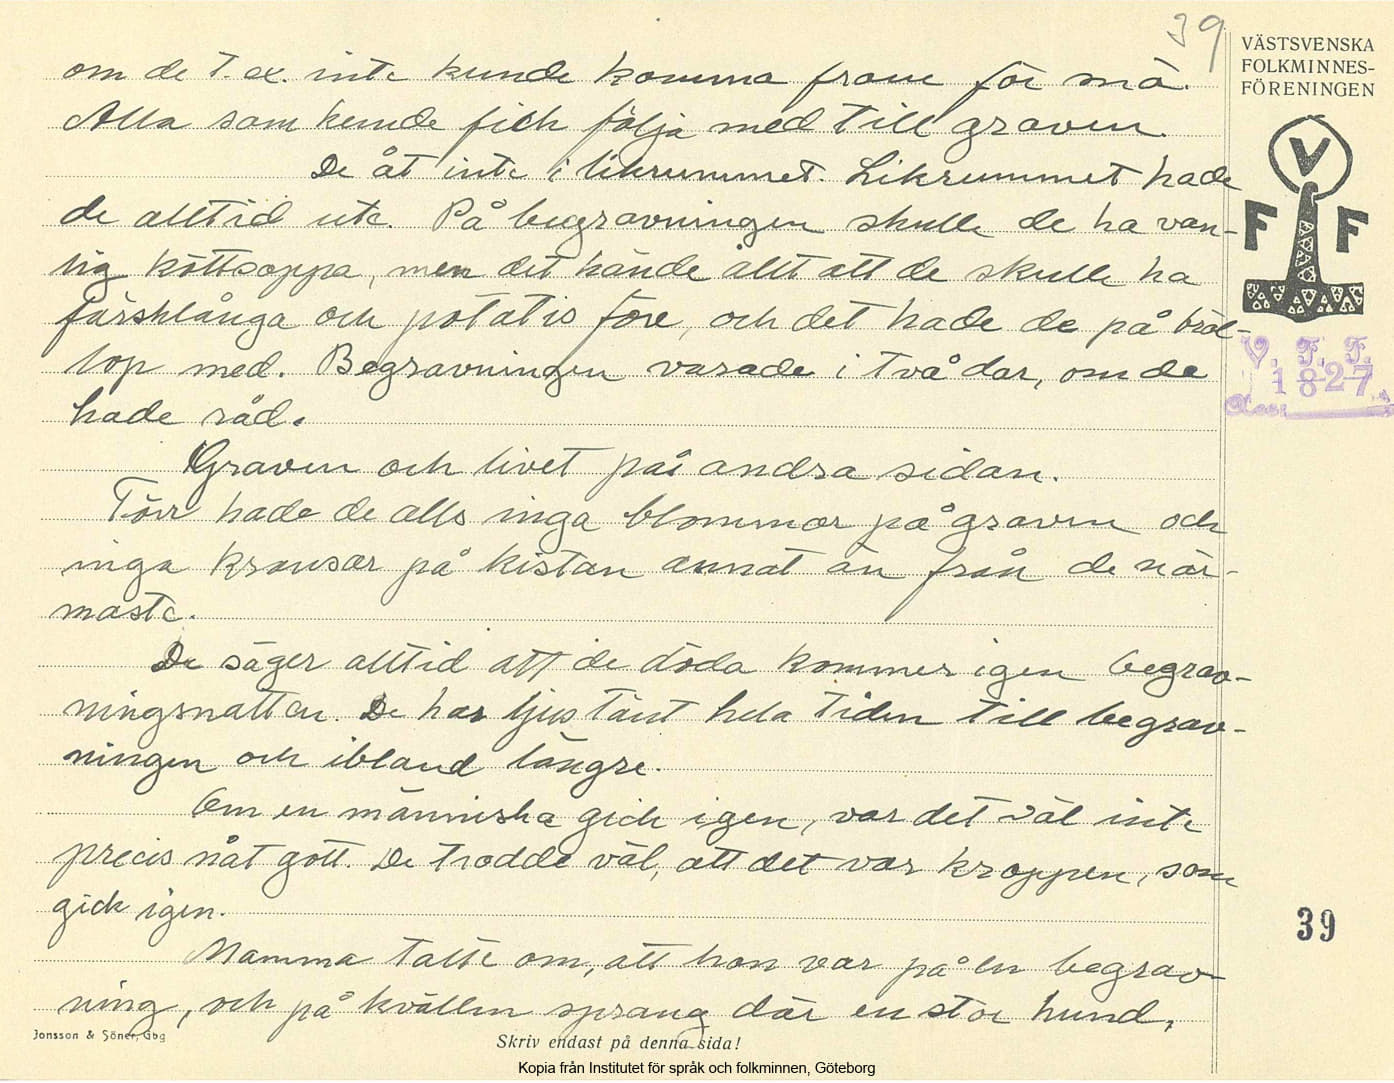 39
VÄSTSVENSKA
FOLKMINNES-
FÖRENINGEN
V
F F
V. F. F.
1827
om de t. ex. inte kunde komma fram för snö.
Alla som kunde fick följa med till graven.
De åt inte i likrummet. Likrummet hade
de alltid ute. På begravningen skulle de ha van-
lig köttsoppa, men det hände allt att de skulle ha
färsklånga och potatis före, och det hade de på bröl-
lop med. Begravningen varade i två dar, om de
hade råd.
Graven och livet på andra sidan.
Förr hade de alls inga blommor på graven och
inga kransar på kistan annat än från de när-
maste.
De säger alltid att de döda kommer igen begrav-
ningsnatten. De har ljus tänt hela tiden till begrav-
ningen och ibland längre.
Om en människa gick igen, var det väl inte
precis nåt gott. De trodde väl, att det var kroppen, som
gick igen.
Mamma talte om, att hon var på en begrav-
ning, och på kvällen sprang där en stor hund,
39
Jonsson & Söner, Gbg
Skriv endast på denna sida!
Kopia från Institutet för språk och folkminnen, Göteborg